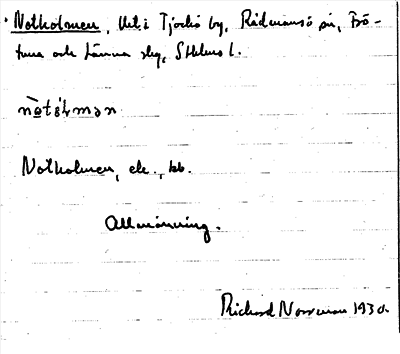 Notholmen, Utl. i Tjockö by, Rådmansö sn, Frö-
tuna och Länna skg, Sthlms l.
Notholmen, ek., kb.
Allmänning.
Richard Norrman 1930.